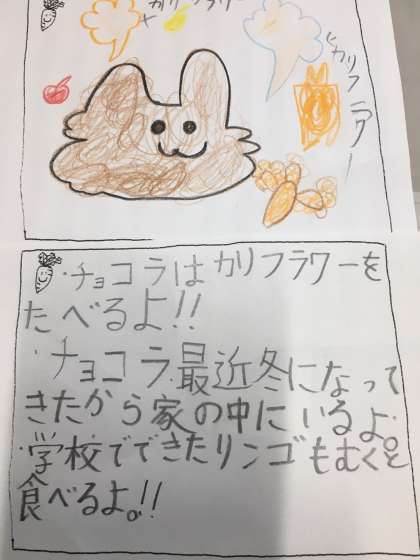 カリフラワー
カリフラワー
・チョコラはカリフラワーを
たべるよ!!
・チョコラ最近冬になって
きたから家の中にいるよ。
・学校でできたリンゴもむくと
食べるよ。!!